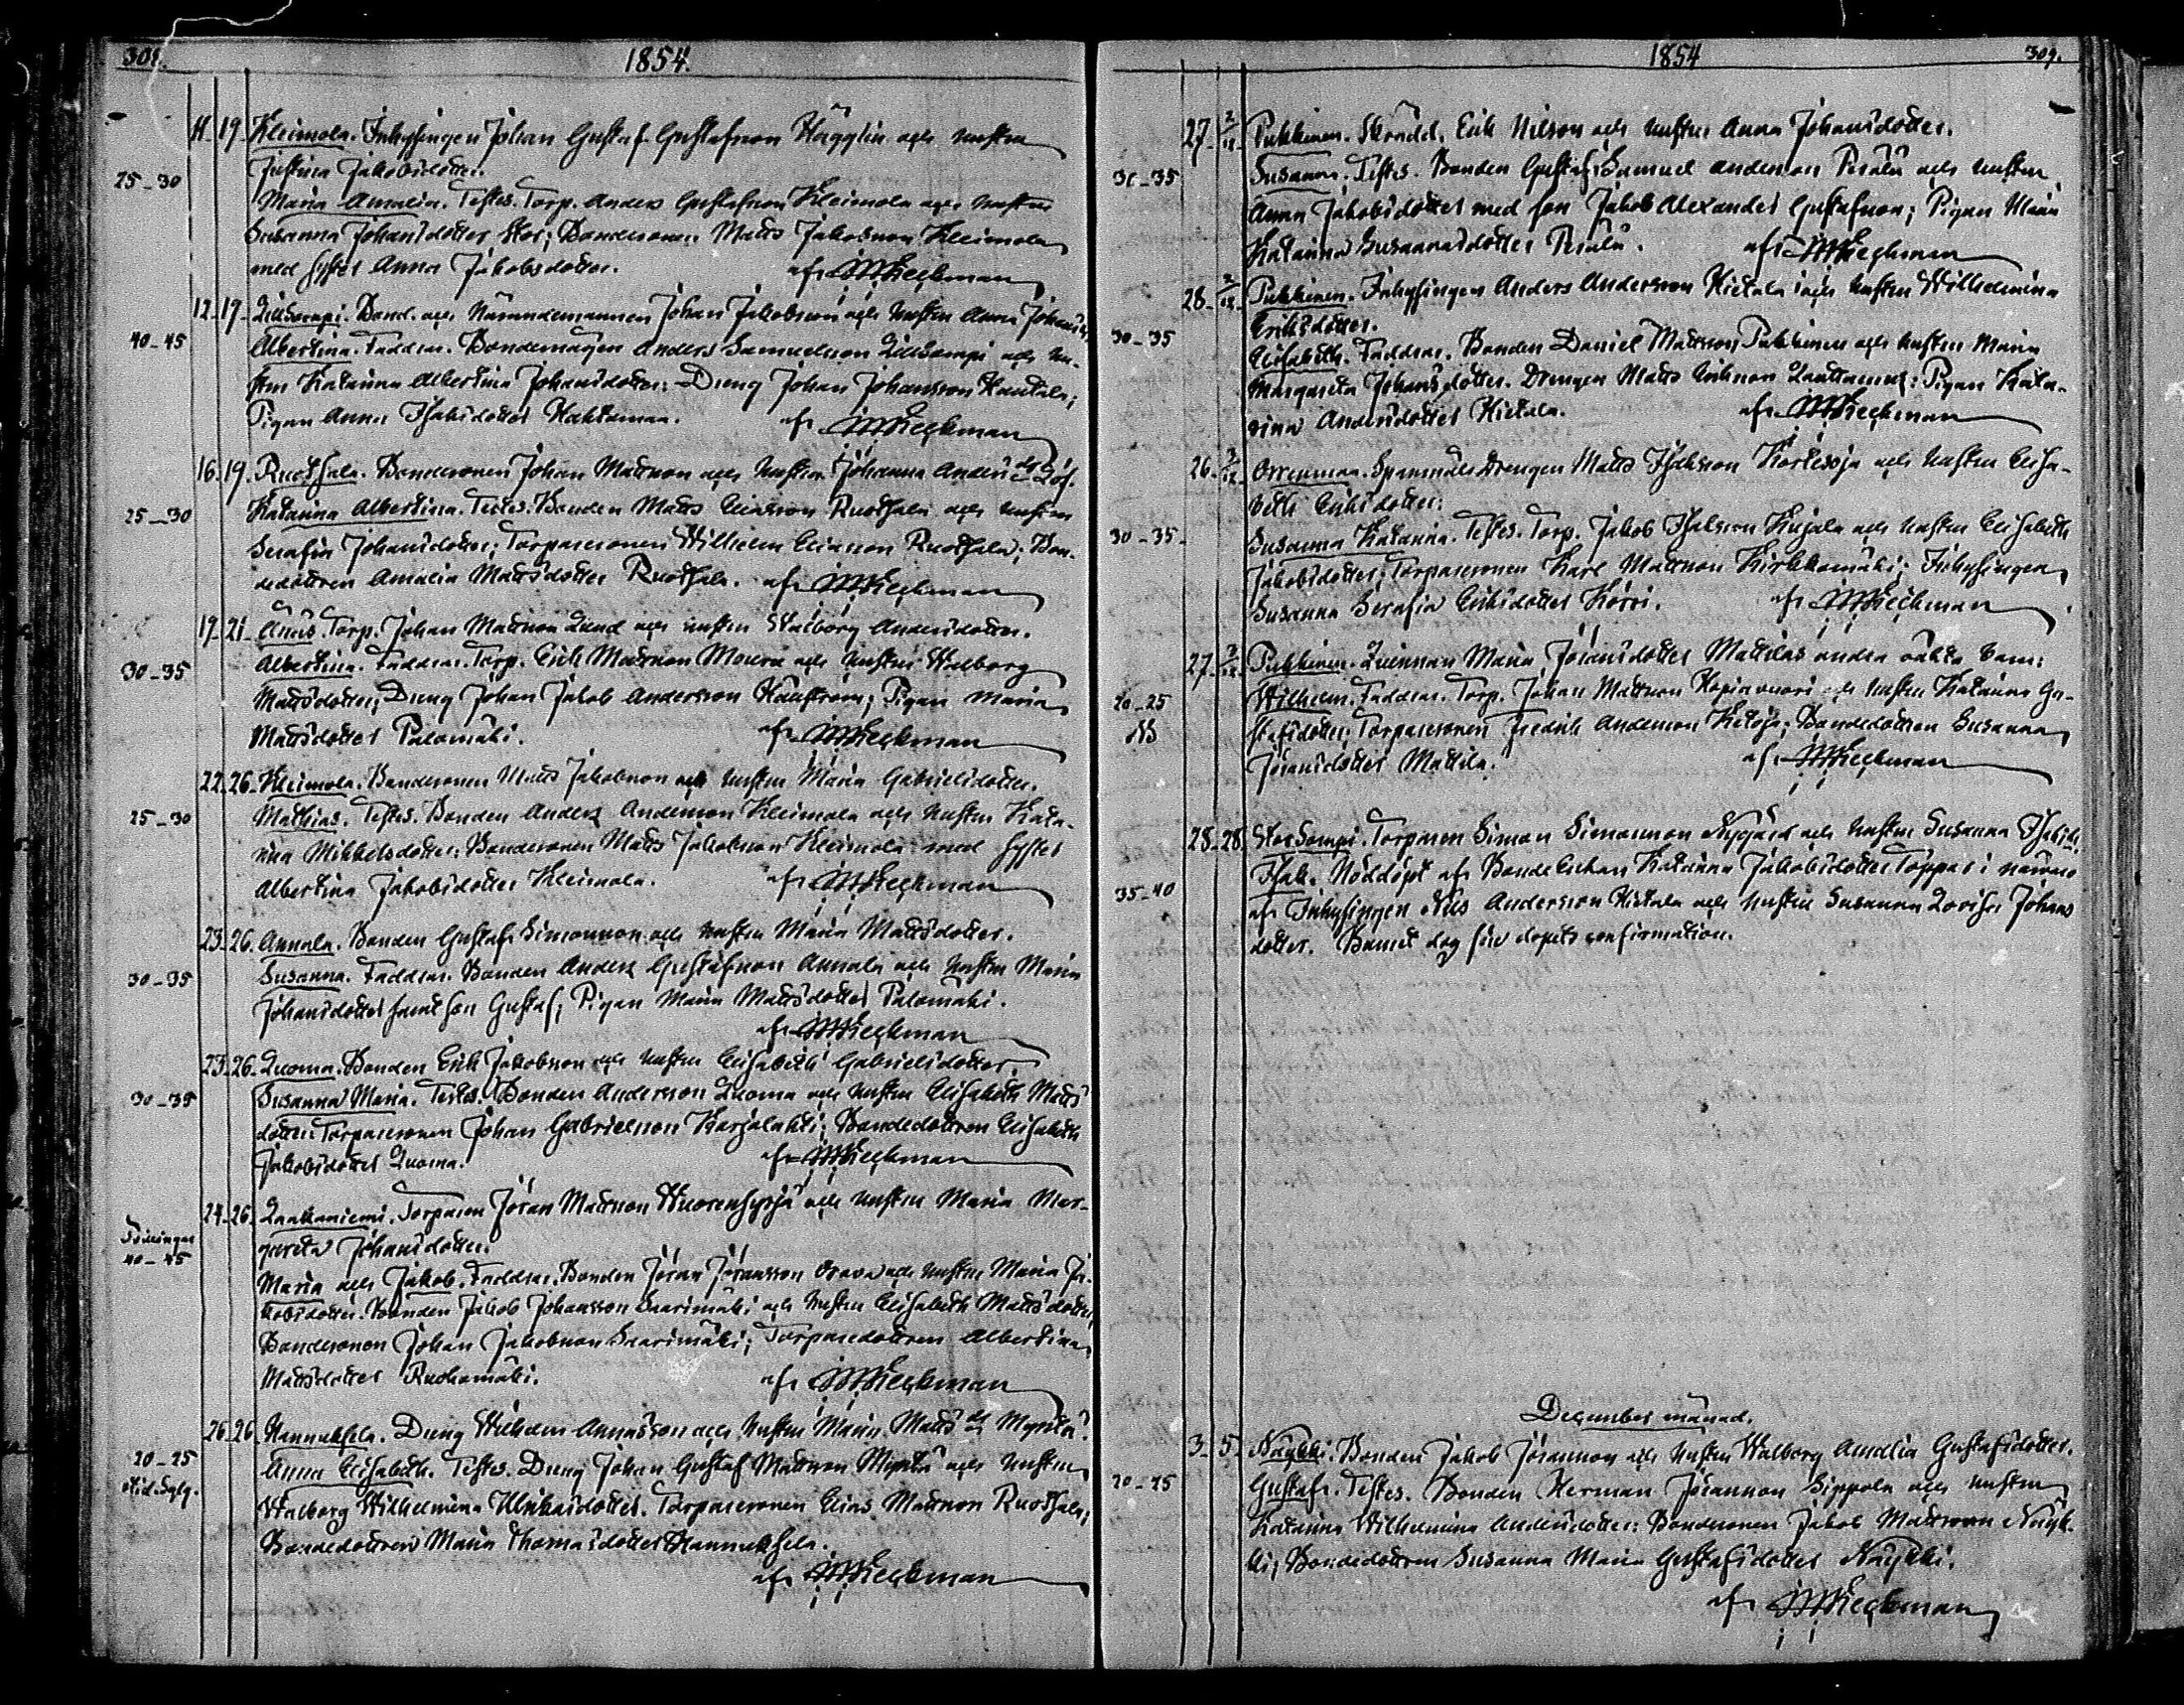 308. 1854.
11. 19. Kleimola. Inhysingen Johan Gustaf Gustafsson Hägglin och hustru
Justina Jakobsdotter.
25-30
Maria Amalia. Testes. Torp. Anders Gustafsson Kleimola och hustru
Susanna Johansdotter Stor; Bondesonen Matts Jakobsson Kleimola
med syster Anna Jakobsdotter. af Heckman
12. 19. Lillsampi. Bond. och Nämndemannen Johan Jakobsson och hustru Anna Johansd.
40-45
Albertina. Faddrar. Bondemågen Anders Samuelsson Lillsampi och hu-
stru Katarina Albertina Johansdotter; Dreng Johan Johansson Hautala;
Pigan Anna Isaksdotter Hahtomaa. af Heckman
16. 19. Ruotsala. Bondesonen Johan Mattsson och hustrun Johanna Andersdr
Katarina Albertina. Testes. Bonden Matts Eliasson Ruotsala och hustru
25-30
Serafia Johansdotter; Torparesonen Wilhelm Eliasson Ruotsala; Bon-
dedottren Amalia Mattsdotter Ruotsala. af Heckman
19. 21. Änäs. Torp. Johan Mattsson Lund och hustru Walborg Andersdotter.
30-35
Albertina. Faddrar. Torp. Erik Mattsson och hustru Walborg
Mattsdotter; Dreng Johan Jakob Andersson; Pigan Maria
Mattsdotter Palomäki. af Heckman
22. 26. Kleimola. Bondesonen Matts Jakobsson och hustru Maria Gabrielsdotter.
25-30
Mathias. Testes. Bonden Anders Andersson Kleimola och hustru Kata-
rina Mikkelsdotter; Bondesonen Matts Jakobsson Kleimola med syster
Albertina Jakobsdotter Kleimola. af Heckman
23. 26. Annala. Bonden Gustaf Simonsson och hustru Maria Mattsdotter.
30-35
Susanna. Faddrar. Bonden Anders Gustafsson Annala och hustru Maria
Johansdotter samt son Gustaf; Pigan Maria Mattsdotter Palomäki.
af Heckman
23. 26. Luoma. Bonden Erik Jakobsson och hustru Elisabeth Gabrielsdotter.
30-35
Susanna Maria. Testes. Bonden Andersson Luoma och hustru Elisabeth Matts
dotter; Torparesonen Johan Gabrielsson Karjalahti; Bondedottren Elisabeth
Jakobsdotter Luoma. af Heckman
24. 26. Laakaniemi. Torparen Jöran Mattsson Wuorensyrjä och hustru Maria Mar-
gareta Johansdotter.
Tvillingar
40-45
Maria och Jakob. Faddrar. Bonden Jöran Jöransson Orava och hustru Maria Ja-
kobsdotter. Bonden Jakob Johansson Saarimäki och hustru Elisabeth Mattsdotter;
Bondesonen Johan Jakobsson Saarimäki; Torparedottren Albertina
Mattsdotter Ruohomäki. af Heckman
26. 26. Hannuksela. Dreng Wilhelm Annasson och hustru Maria Mattsdr Myntä.
20-25
Anna Elisabeth. Testes. Dreng Johan Gustaf Mattsson Myntä och hustru
Walborg Wilhelmina Ulrikasdotter. Torparesonen Elias Mattsson Ruotsala;
Bondedottren Maria Thomasdotter Hannuksela.
af Heckman
1854 309.
27. 2/12. Pukkinen. Skrädd. Erik Nilsson och hustru Anna Johansdotter.
30-35
Susanna. Testes. Bonden Gustaf Samuel Andersson Perälä och hustru
Anna Jakobsdotter med son Jakob Alexander Gustafsson; Pigan Maria
Katarina Susannasdotter Perälä. af Heckman
28. 2/12. Pukkinen. Inhysingen Anders Andersson Hietala och hustru Wilhelmina
Eriksdotter.
30-35
Elisabeth. Faddrar. Bonden Daniel Mattsson Pukkinen och hustru Maria
Margareta Johansdotter. Drengen Matts Eriksson; Pigan Kata-
rina Andersdotter Hietala. af Heckman
26. 3/12. Orrenmaa. Spannmåls Drengen Matts Isaksson Kortesoja och hustru Elisa-
beth Eriksdotter.
30-35
Susanna Katarina. Testes. Torp. Jakob Isaksson Kujala och hustru Elisabeth
Jakobsdotter; Torparesonen Karl Mattsson Kirkkomäki; Inhysingen
Susanna Serafia Eriksdotter Körri. af Heckman
27. 3/12. Pukkinen. Quinnan Maria Jöransdotter Mattilas andra oäkta barn:
20-25
Wilhelm. Faddrar. Torp. Johan Mattsson Kopiavuori och hustru Katarina Gu-
stafsdotter; Torparesonen Fredrik Andersson Ketoja; Bondedottren Susanna
Jöransdotter Mattila. af Heckman
28. 28. Storsampi. Torparen Simon Simonsson Nygård och hustru Susanna Isaksdr.
35-40
Isak. Nöddöpt af Bonde Enkan Katarina Jakobsdotter Toppari i närvaro
af Inhysingen Nils Andersson Hietala och hustru Susanna Lovisa Johans
dotter. Barnet dog före dopets confirmation.
December månad.
3. 5. Näykki. Bonden Jakob Jöransson och hustru Walborg Amalia Gustafsdotter.
20-25
Gustaf. Testes. Bonden Herman Jöransson Sippola och hustru
Katarina Wilhelmina Andersdotter; Bondesonen Jakob Mattsson Näyk-
ki; Bondedottren Susanna Maria Gustafsdotter Näykki.
af Heckman